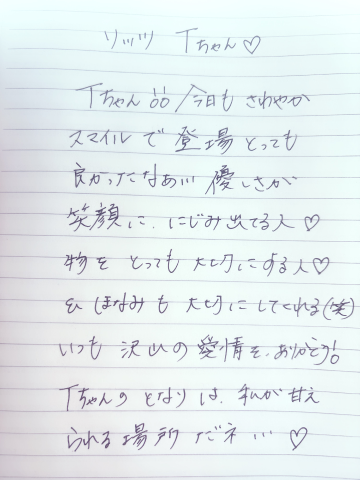 リッツ Tちゃん♡
Tちゃん 今日も さわやか
スマイルで 登場 とっても
良かったなぁ… 優しさが
笑顔に、にじみ出てる人♡
物を とっても 大切にする人♡
ほなみも 大切にしてくれる(笑)
いつも 沢山の 愛情を、ありがとう!
Tちゃんの となりは、私が 甘え
られる 場所 だネ…♡